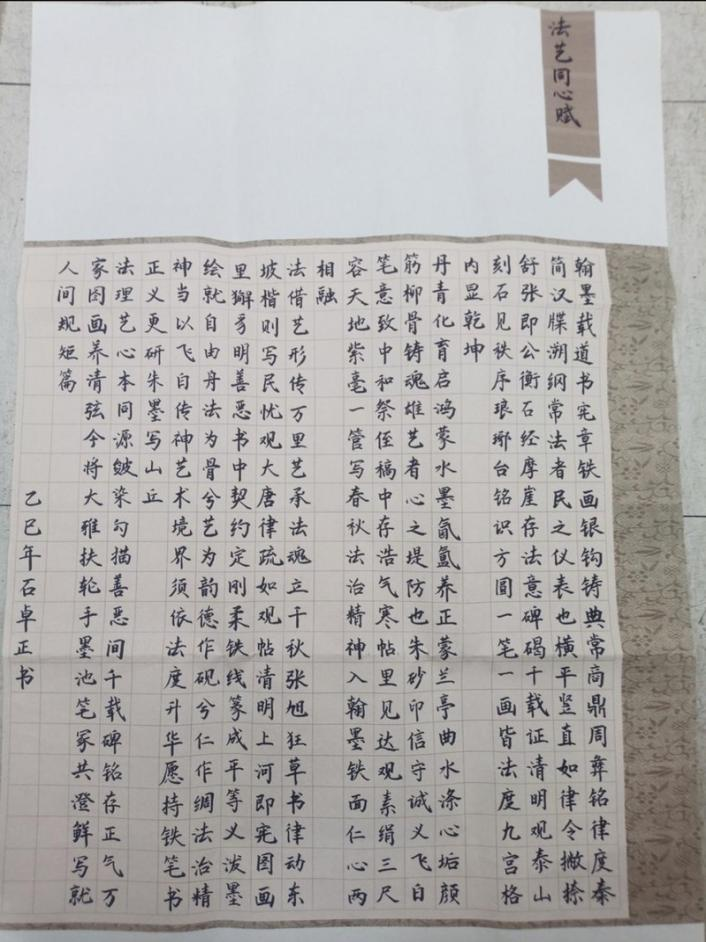 法艺同心赋
翰墨载道书宪章铁画银钩铸典常商鼎周彝铭律度秦
简汉牒溯纲常法者民之仪表也横平竖直如律令撇捺
舒张即公衡石经摩崖存法意碑碣千载证清明观泰山
刻石见秩序琅琊台铭识方圆一笔一画皆法度九宫格
内显乾坤
丹青化育启鸿蒙水墨氤氲养正蒙兰亭曲水涤心垢颜
筋柳骨铸魂雄艺者心之堤防也朱砂印信守诚义飞白
笔意致中和祭侄稿中存浩气寒帖里见达观素绢三尺
容天地紫毫一管写春秋法治精神入翰墨铁面仁心两
相融
法借艺形传万里艺承法魂立千秋张旭狂草书律动东
坡楷则写民忧观大唐律疏如观帖清明上河即宪图画
里獬豸明善恶书中契约定刚柔铁线篆成平等义泼墨
绘就自由丹法为骨兮艺为韵德作砚兮仁作绸法治精
神当以飞白传神艺术境界须依法度升华愿持铁笔书
正义更研朱墨写山丘
法理艺心本同源皴染勾描善恶间千载碑铭存正气万
家图画养清弦今将大雅扶轮手墨池笔冢共澄鲜写就
人间规短篇
乙巳年石卓正书